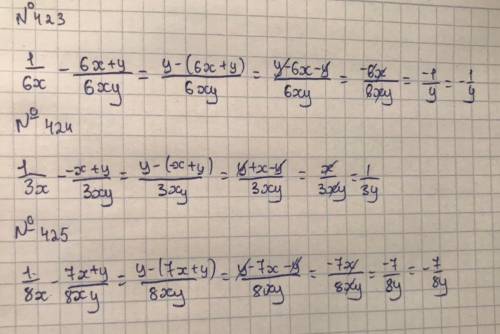 №423
1/6x - (6x+y)/6xy = (y-(6x+y))/6xy = (y-6x-y)/6xy = -6x/6xy = -1/y = -1/y
№424
1/3x - (-x+y)/3xy = (y-(-x+y))/3xy = (y+x-y)/3xy = x/3xy = 1/3y
№425
1/8x - (7x+y)/8xy = (y-(7x+y))/8xy = (y-7x-y)/8xy = -7x/8xy = -7/8y = -7/8y